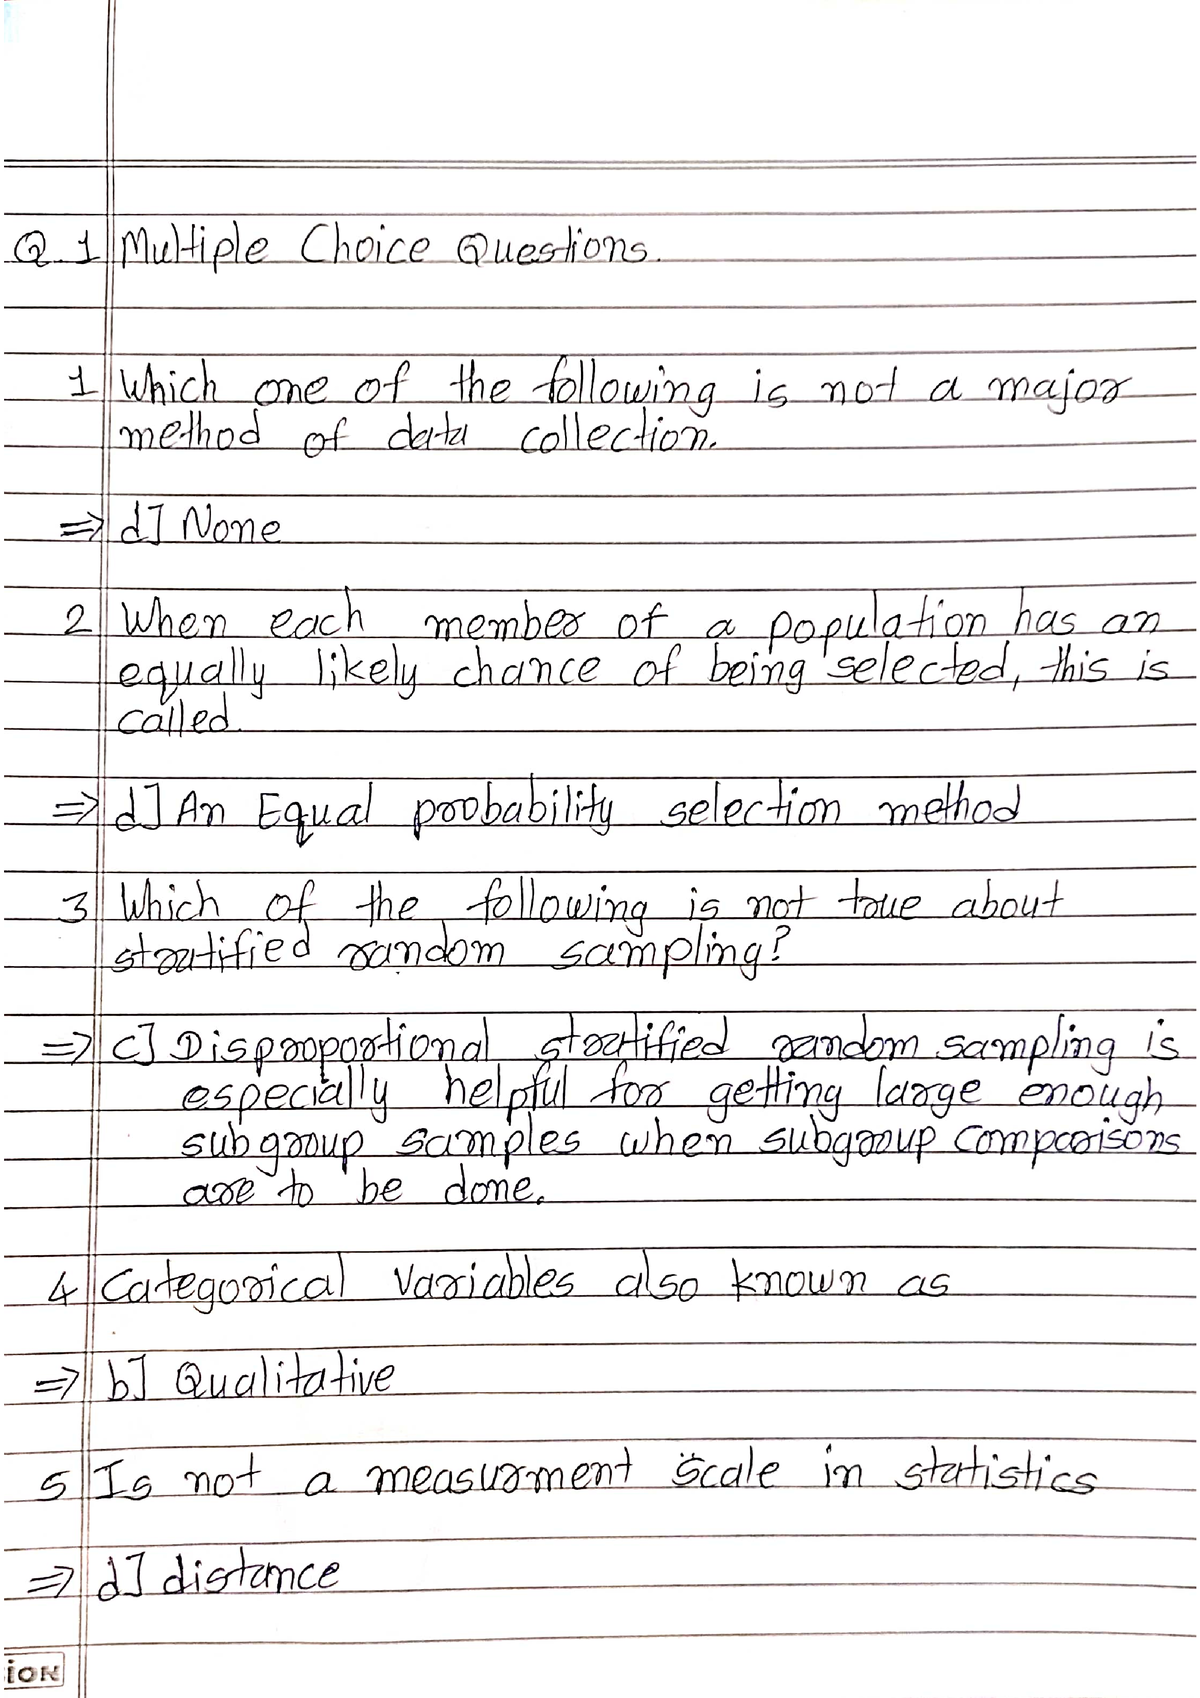 Q.1 Multiple Choice Questions.
1 Which one of the following is not a major
method of data collection.
=> d] None
2 When each member of a population has an
equally likely chance of being selected, this is
called.
=> d] An Equal probability selection method
3 Which of the following is not true about
stratified random sampling?
=> c] Disproportional stratified random sampling is
especially helpful for getting large enough
subgroup samples when subgroup comparisons
are to be done.
4 Categorical Variables also known as
=> b] Qualitative
5 Is not a measurment scale in statistics
=> d] distance
ION